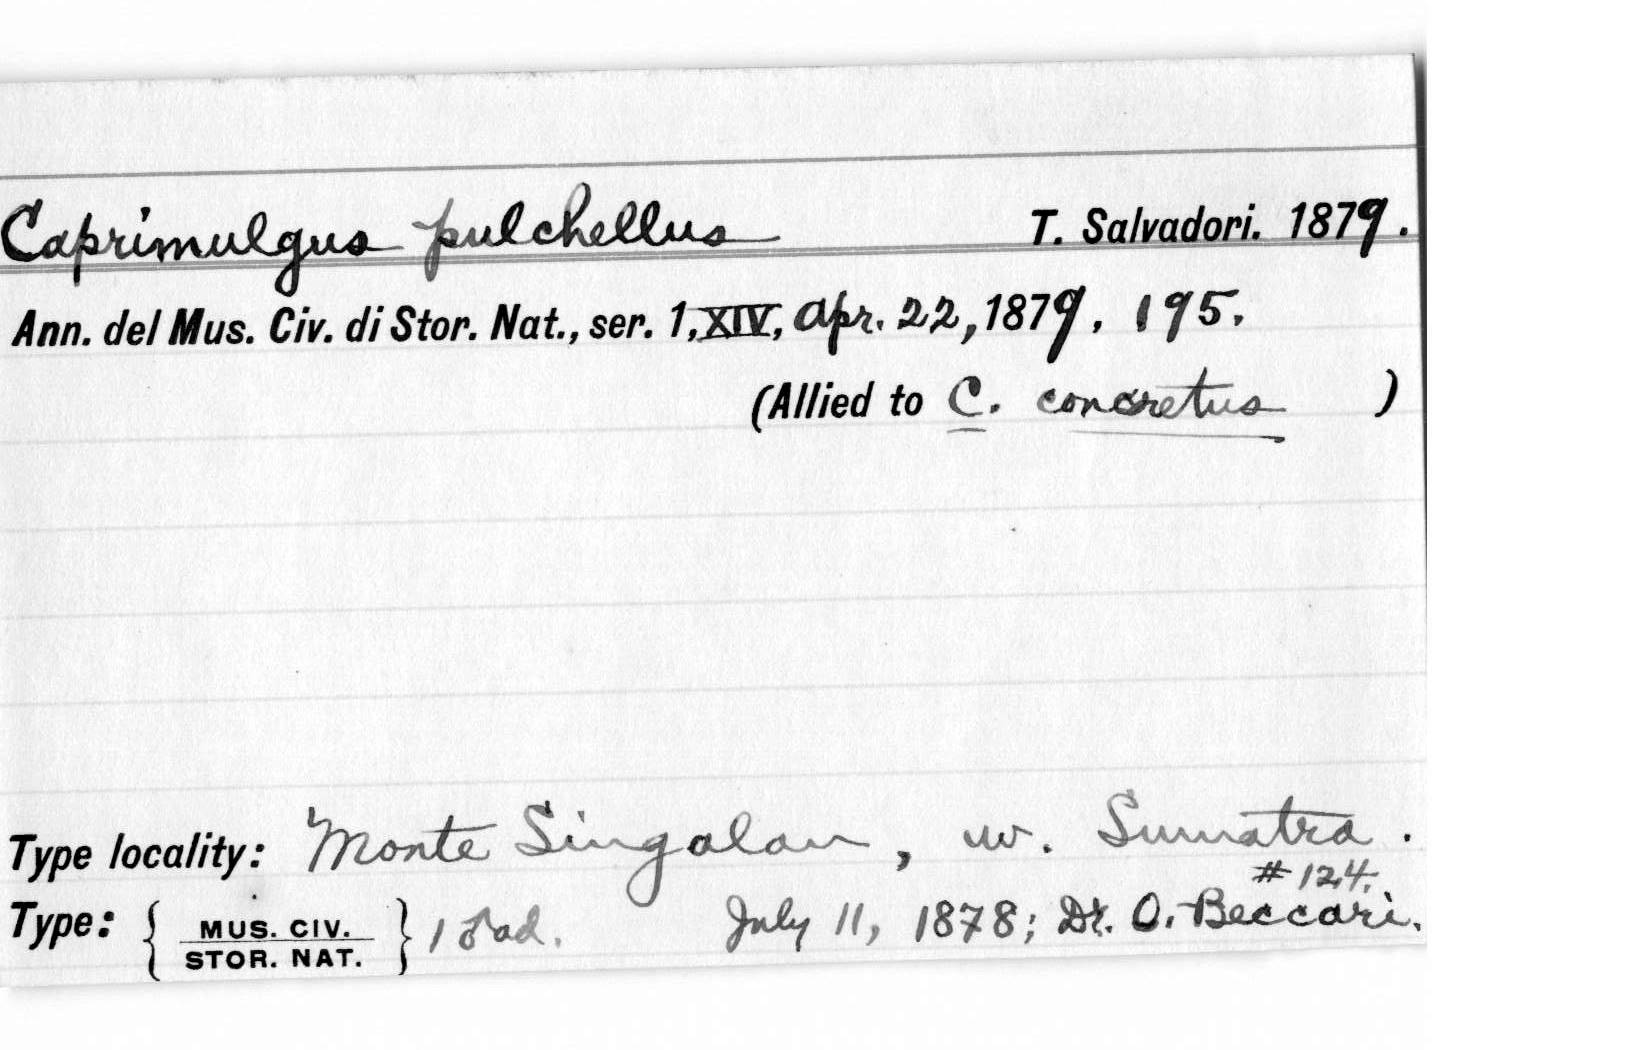 Caprimulgus pulchellus T. Salvadori. 1879.
Ann. del Mus. Civ. di Stor. Nat., ser. 1, XIV, Apr. 22, 1879, 195.
(Allied to C. concretus )
Type locality: Monte Singalan, w. Sumatra.
#124.
Type: { MUS. CIV. STOR. NAT. } 1 ♂ ad. July 11, 1878; Dr. O. Beccari.